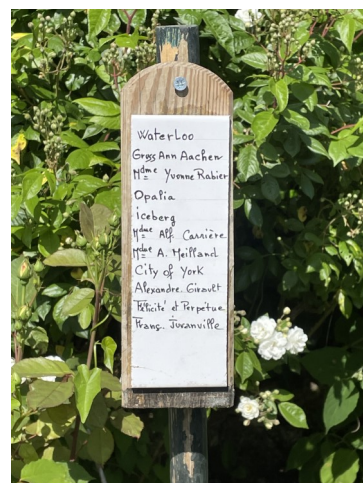 WaterLoo
Gruss Ann Aachen
Mdme Yvonne Rabier
Opalia
iceberg
Mdme Alf. Carrière
Mdme A. Meilland
City of York
Alexandre Girault
Félicité et Perpétue
Franç. Juranville